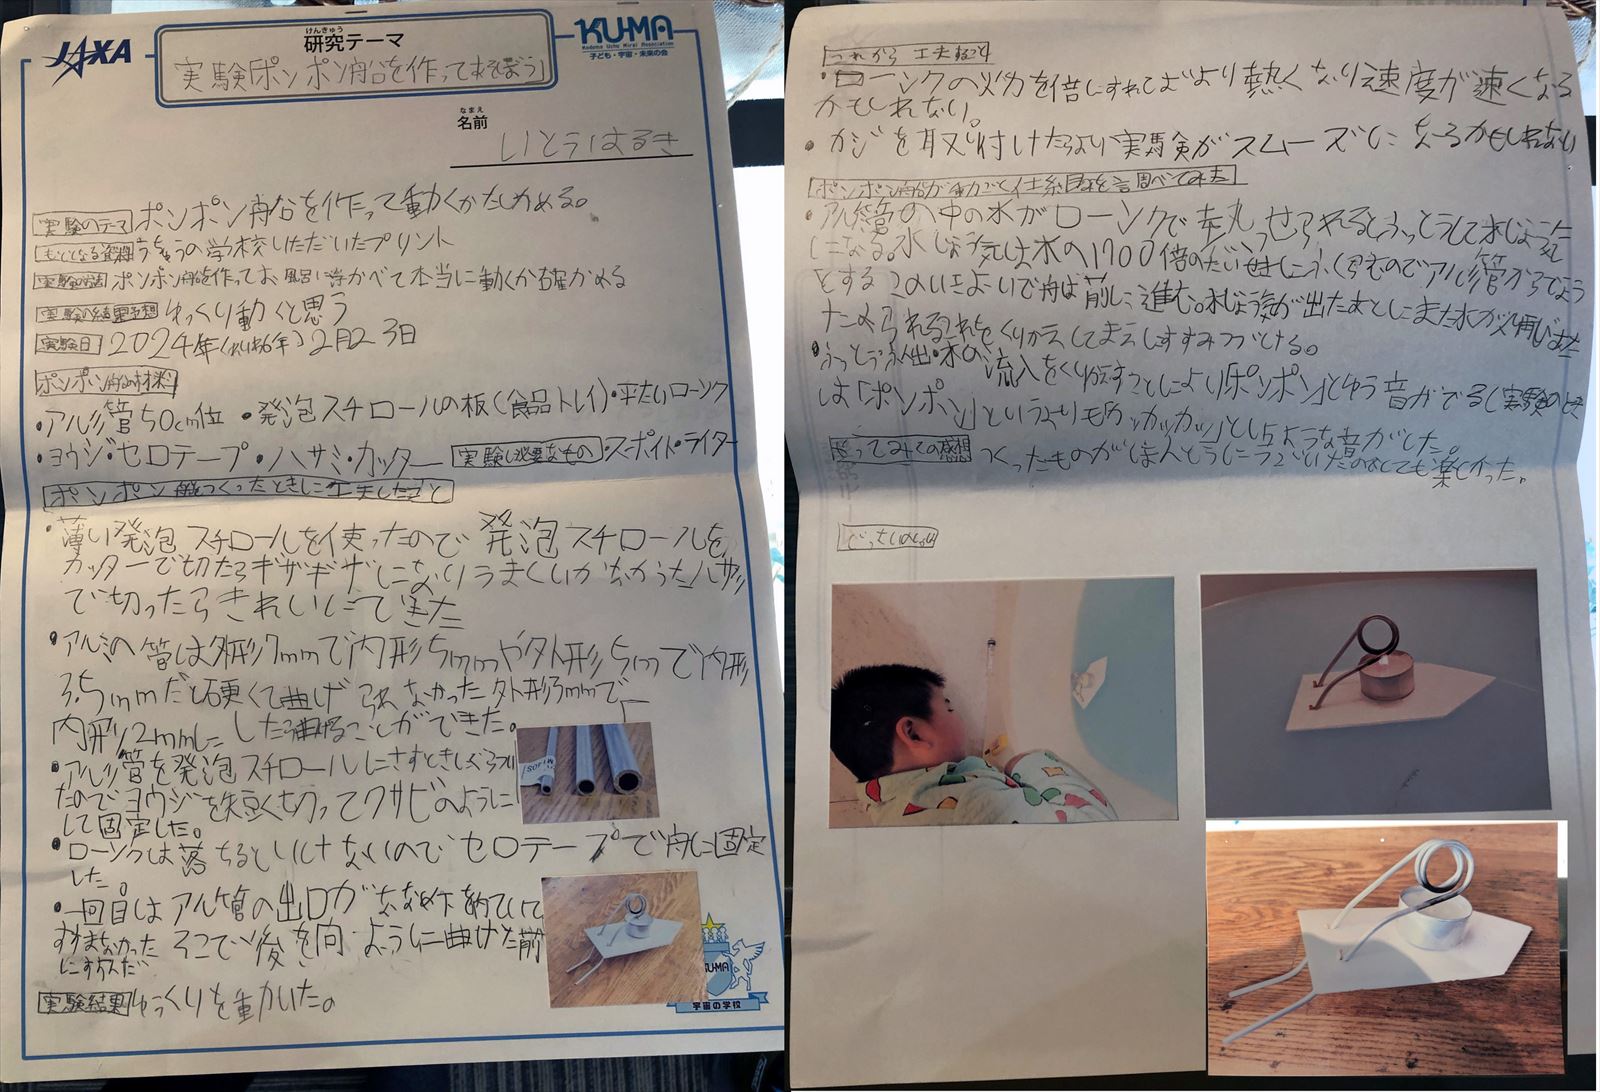 JAXA
けんきゅう
研究テーマ
実験「ポンポン船を作ってあそぼう」
KU-MA
Kodomo Uchu Mirai Association
子ども・宇宙・未来の会
なまえ
名前
いとうはるき
実験のテーマ ポンポン船を作って動くかたしかめる。
もとになる資料 うちゅうの学校でいただいたプリント
実験の方法 ポンポン船を作って、お風呂に浮かべて本当に動くか確かめる
実験の結果予想 ゆっくり動くと思う
実験日 2024年(れいわ6年)2月23日
ポンポン船の材料
・アルミ管50cm位 ・発泡スチロールの板(食品トレイ)・平たいローソク
・ヨウジ・セロテープ・ハサミ・カッター 実験に必要なもの ・スポイト・ライター
ポンポン船つくったときに工夫したこと
・薄い発泡スチロールを使ったので発泡スチロールを
カッターで切たらギザギザになりうまくいかなかったハサミ
で切ったらきれいにできた
・アルミの管は外形7mmで内形5mmや外形5mmで内形
3.5mmだと硬くて曲げられなかった外形3mmで
内形2mmにしたら曲げることができた。
・アルミ管を発泡スチロールにさすときしぐらつい
たのでヨウジを短く切ってクサビのように
して固定した。
・ローソクは落ちるといけないのでセロテープで舟に固定
した。
・一回目はアルミ管の出口がななめ下を向いていて
すすまなかった そこで後を向くように曲げた前
にすすんだ
実験結果 ゆっくりと動いた。
宇宙の学校
これから工夫すること
・ローソクの火力を倍にすればより熱くなり速度が速くなる
かもしれない。
・カジを取り付けたらより実験がスムーズになるかもしれない
ポンポン船が動く仕組を調べてみた
・アルミ管の中の水がローソクで熱せられるとふっとうして水じょう気
になる。水じょう気は水の1700倍のたいせきにふくらむのでアルミ管からでよう
とする このいきよいで舟は前に進む。水じょう気が出たあとにまた水が再びあた
ためられるこれをくりかえしてまえにすすみつづける。
・ふっとう・ふん出・水の流入をくり返すことにより「ポンポン」とゆう音がでる(実験のとき
は「ポンポン」というよりも「カッカッカッ」としたような音がした。
作ってみての感想 つくったものがほんとうにうごいたのでとても楽しかった。